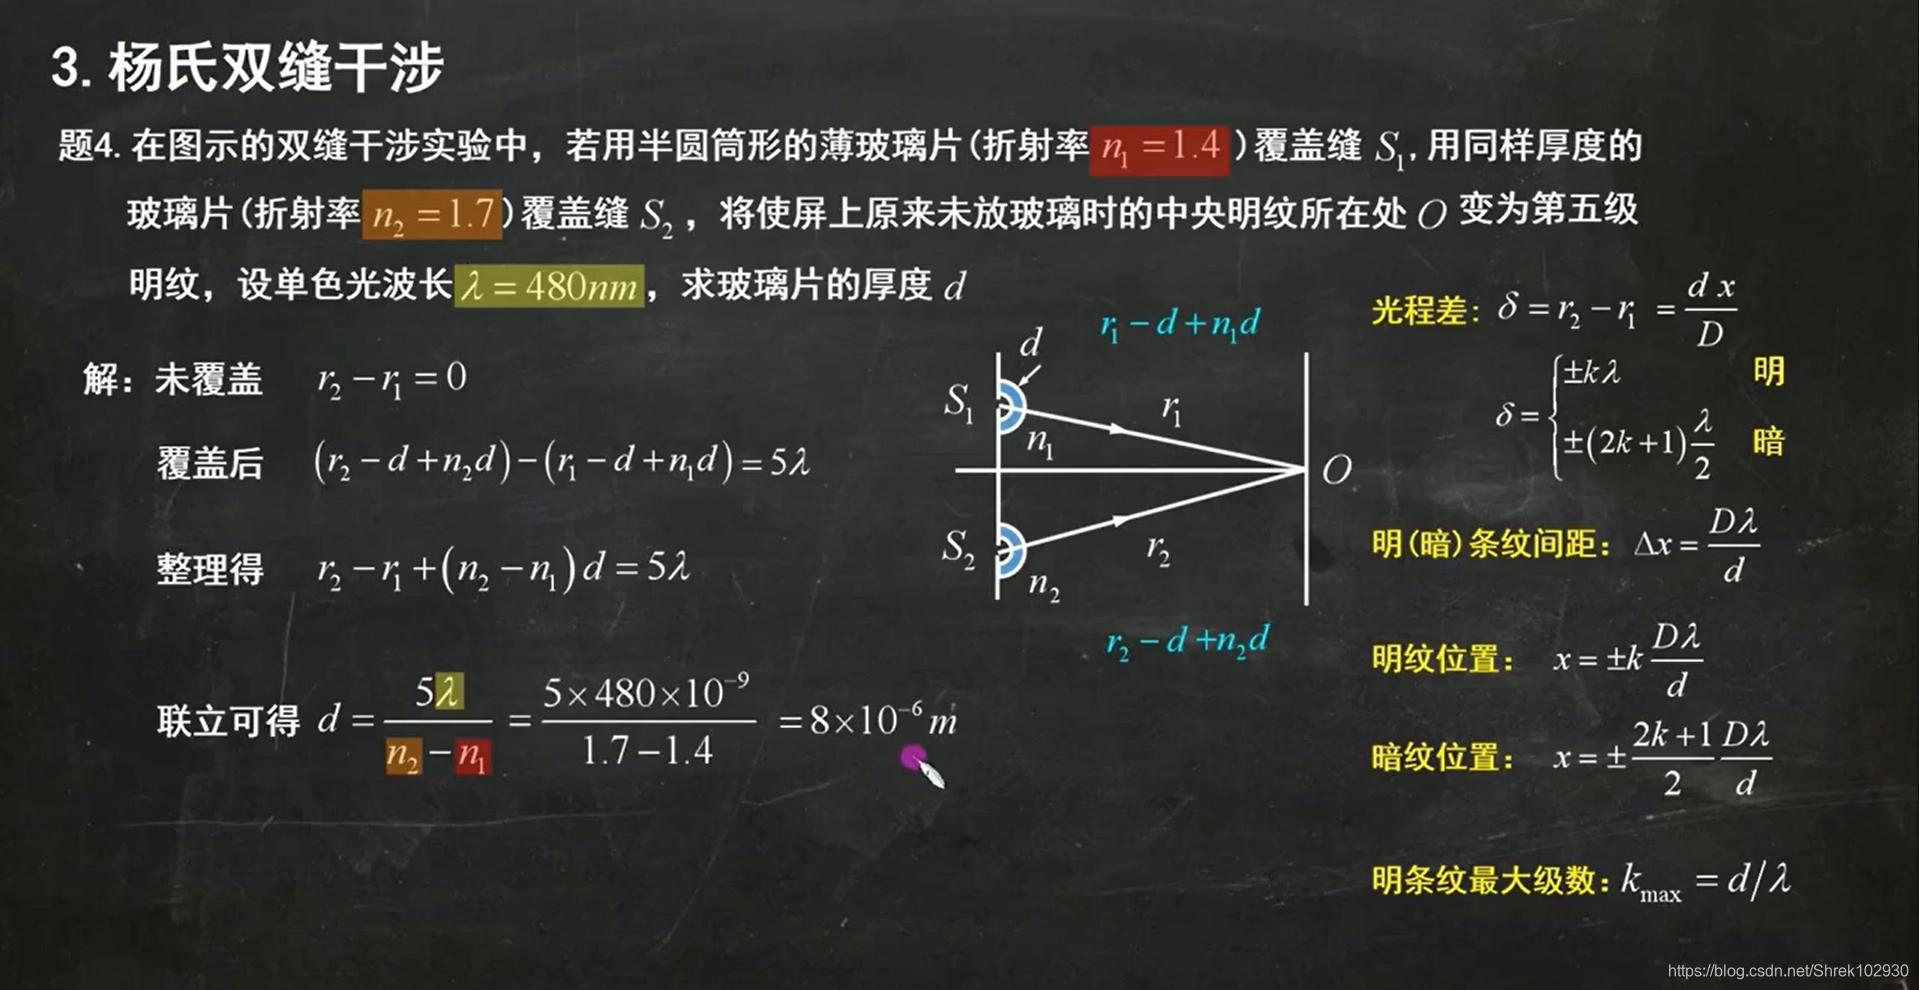 3. 杨氏双缝干涉
题4. 在图示的双缝干涉实验中，若用半圆筒形的薄玻璃片(折射率 n₁ =1.4 )覆盖缝 S₁, 用同样厚度的
玻璃片(折射率 n₂ =1.7 )覆盖缝 S₂ ，将使屏上原来未放玻璃时的中央明纹所在处 O 变为第五级
明纹，设单色光波长 λ = 480nm ，求玻璃片的厚度 d
解：未覆盖 r₂ − r₁ = 0
覆盖后 (r₂ − d + n₂d) − (r₁ − d + n₁d) = 5λ
整理得 r₂ − r₁ + (n₂ − n₁)d = 5λ
联立可得 d = 5λ/(n₂ − n₁) = (5×480×10⁻⁹)/(1.7−1.4) = 8×10⁻⁶ m
r₁ − d + n₁d
d
S₁
r₁
n₁
O
S₂
r₂
n₂
r₂ − d + n₂d
光程差: δ = r₂ − r₁ = d x / D
δ = { ±kλ 明
±(2k+1) λ/2 暗
明(暗)条纹间距: Δx = Dλ/d
明纹位置: x = ±k Dλ/d
暗纹位置: x = ± (2k+1)/2 Dλ/d
明条纹最大级数: k_max = d/λ
https://blog.csdn.net/Shrek102930